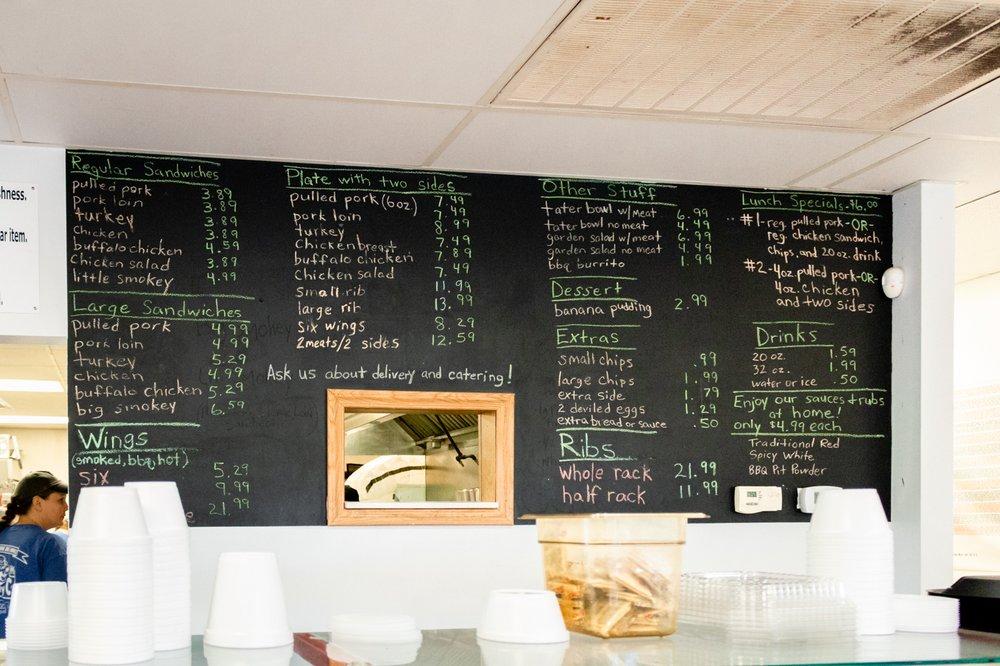 shness.
ar item.
Regular Sandwiches
pulled pork 3.89
pork loin 3.89
turkey 3.89
chicken 3.89
buffalo chicken 4.59
chicken salad 3.89
little smokey 4.99
Large Sandwiches
pulled pork 4.99
pork loin 4.99
turkey 5.29
chicken 4.99
buffalo chicken 5.29
big smokey 6.59
Wings
(smoked, bbq, hot)
six 5.29
9.99
21.99
Plate with two sides
pulled pork (6oz) 7.49
pork loin 7.49
turkey 8.99
Chicken breast 7.49
buffalo chicken 7.89
Chicken salad 7.49
small rib 11.99
large rib 13.99
six wings 8.29
2 meats/2 sides 12.59
Ask us about delivery and catering!
Other Stuff
tater bowl w/meat 6.99
tater bowl no meat 4.49
garden salad w/meat 6.99
garden salad no meat 4.49
bbq burrito 1.99
Dessert
banana pudding 2.99
Extras
small chips .99
large chips 1.99
extra side 1.79
2 deviled eggs 1.29
extra bread or sauce .50
Ribs
whole rack 21.99
half rack 11.99
Lunch Specials-$6.00
#1-reg. pulled pork-OR-
reg. chicken sandwich,
chips, and 20oz. drink
#2-4oz. pulled pork-OR-
4oz. chicken
and two sides
Drinks
20 oz. 1.59
32 oz. 1.99
water or ice .50
Enjoy our sauces & rubs
at home!
only $4.99 each
Traditional Red
Spicy White
BBQ Pit Powder